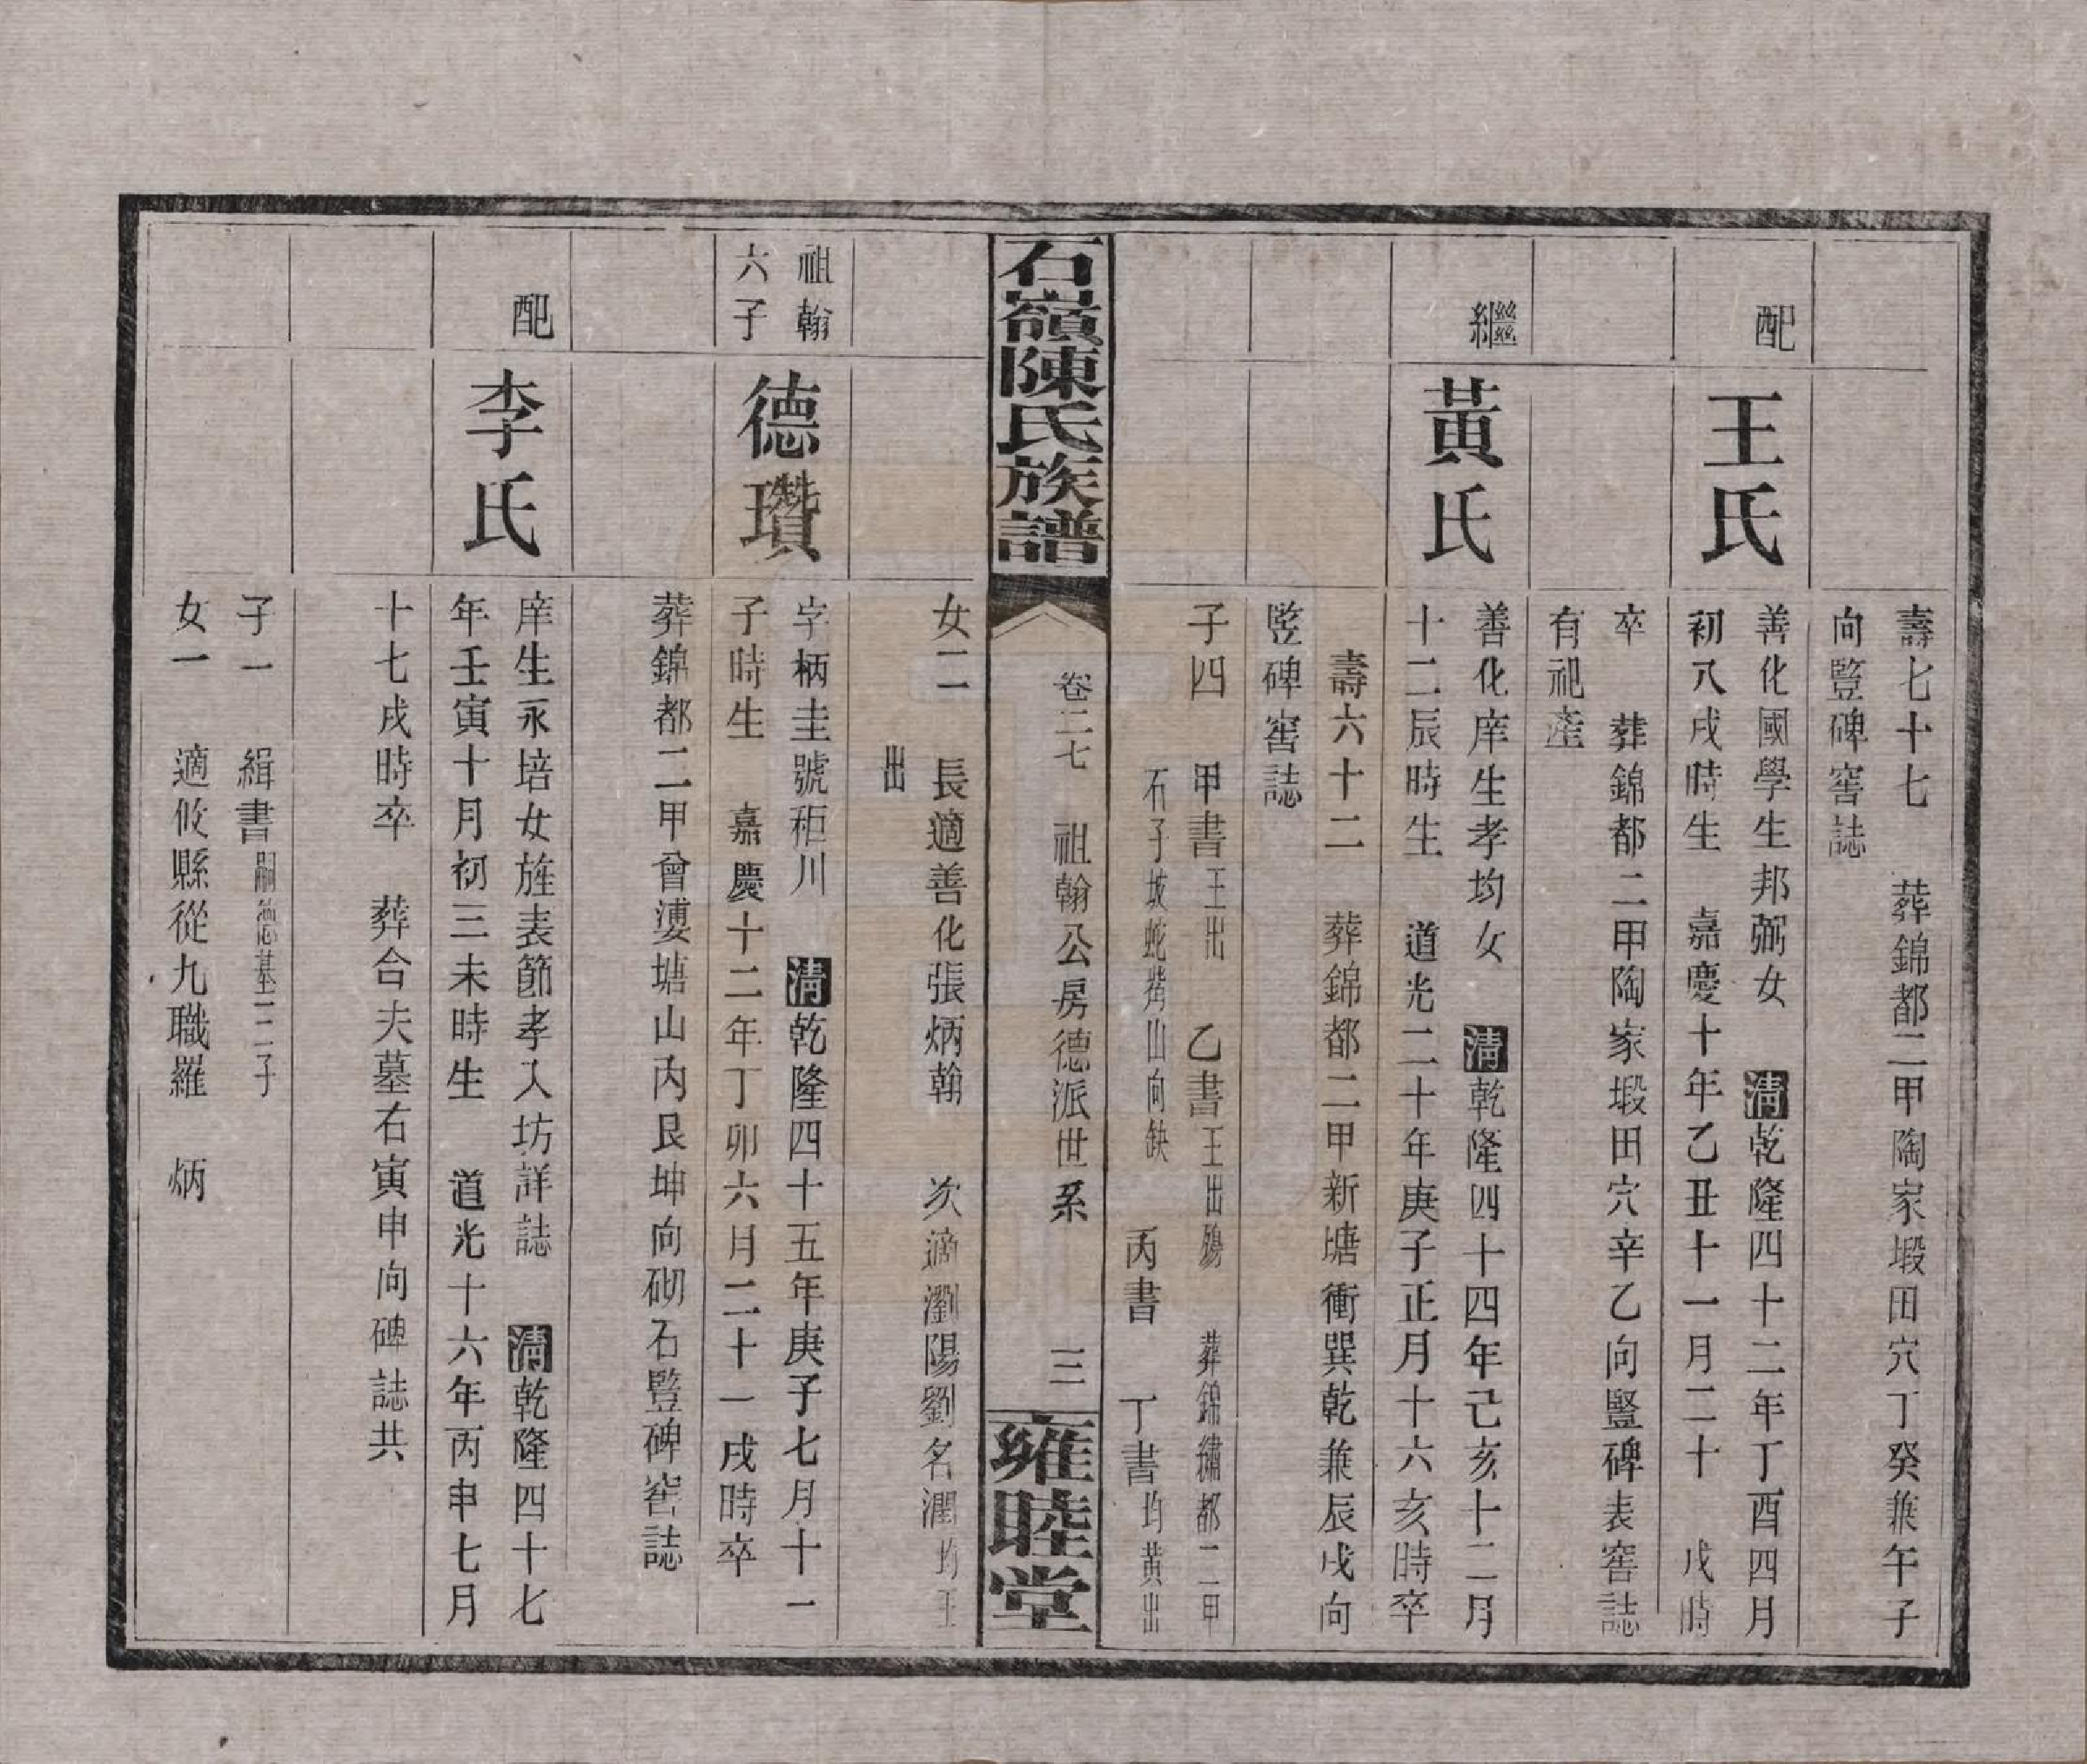 壽七十七　葬錦都二甲陶家塅田穴丁癸兼午子
向豎碑窖誌
配
王氏
善化國學生邦弼女　清乾隆四十二年丁酉四月
初八戌時生　嘉慶十年乙丑十一月二十　戌時
卒　葬錦都二甲陶家塅田穴辛乙向豎碑表窖誌
有祀產
繼
黃氏
善化庠生孝均女　清乾隆四十四年己亥十二月
十二辰時生　道光二十年庚子正月十六亥時卒
壽六十二　葬錦都二甲新塘衝巽乾兼辰戌向
豎碑窖誌
子四　甲書王出　乙書王出殤　葬錦繡都二甲
石子坡蛇形山向缺　丙書　丁書均黃出
石嶺陳氏族譜
卷二七　祖翰公房德派世系　三
雍睦堂
女二　長適善化張炳翰　次適瀏陽劉名潤均王
出
祖翰
六子
德瓚
字柄圭號秬川　清乾隆四十五年庚子七月十一
子時生　嘉慶十二年丁卯六月二十一戌時卒
葬錦都二甲曾婆塘山內艮坤向砌石豎碑窖誌
配
李氏
庠生永培女旌表節孝入坊詳誌　清乾隆四十七
年壬寅十月初三未時生　道光十六年丙申七月
十七戌時卒　葬合夫墓右寅申向碑誌共
子一　緝書嗣德基二子
女一　適攸縣從九職羅　炳